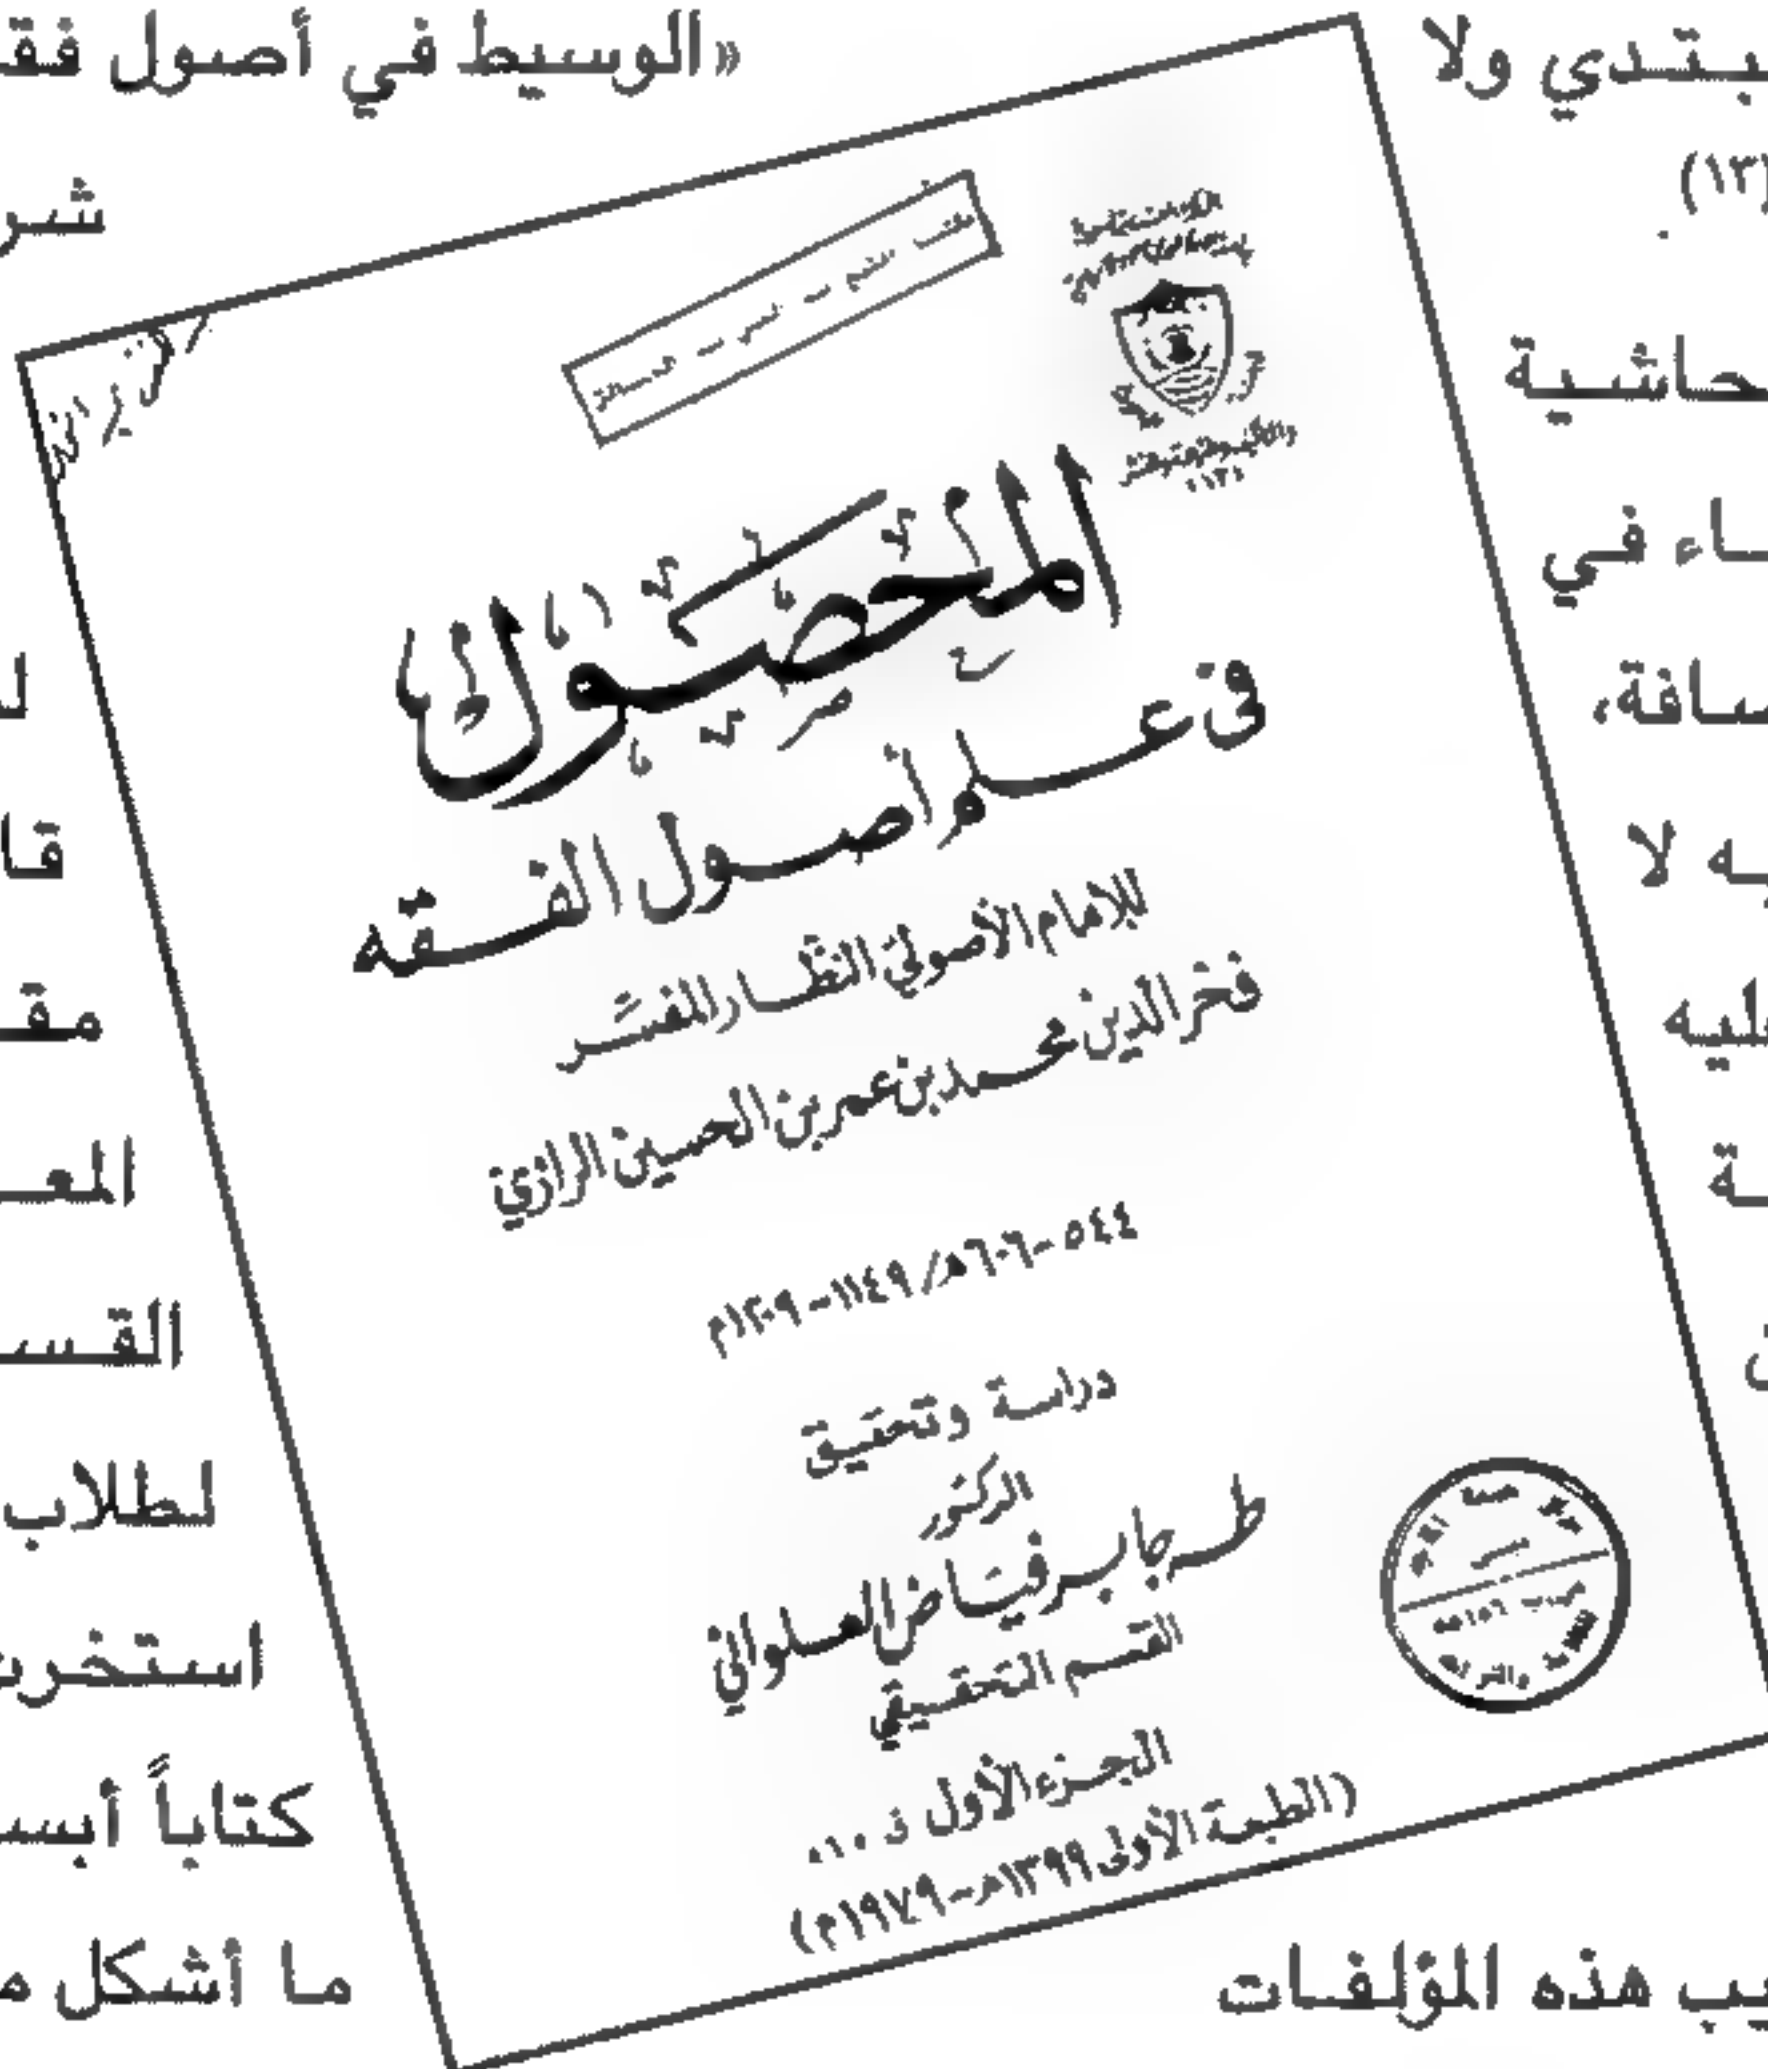 بتدي ولا
(١٣)
.
حاشية
ـاء في
سافة،
ـه لا
ليه
ـة
ـب هذه المؤلفات
المحصول
في علم أصول الفقه
للإمام الأصولي النظار المفسر
فخر الدين محمد بن عمر بن الحسين الرازي
٥٤٤-٦٠٦هـ/١١٤٩-١٢٠٩م
دراسة وتحقيق
الدكتور
طه جابر فياض العلواني
القسم التحقيقي
الجزء الأول
(الطبعة الأولى ١٣٩٩هـ-١٩٧٩م)
«الوسيط في أصول فقـ
شر
لـ
قا
مقـ
المعـ
القسـ
لطلاب
استخر
كتاباً أبسـ
ما أشكل مـ